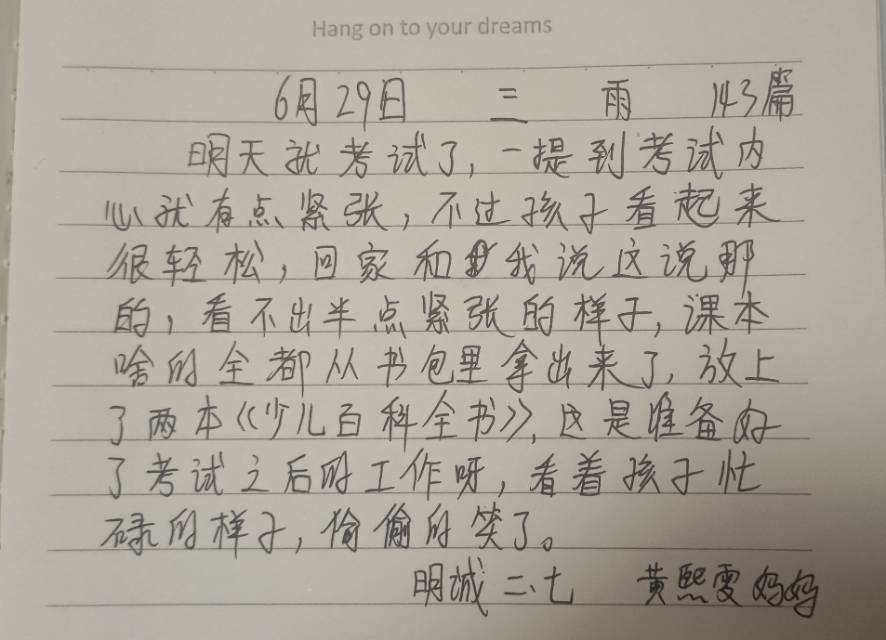 Hang on to your dreams
6月29日 三 雨 143篇
明天就考试了,一提到考试内
心就有点紧张,不过孩子看起来
很轻松,回家和我说这说那
的,看不出半点紧张的样子,课本
啥的全都从书包里拿出来了,放上
了两本《少儿百科全书》,这是准备好
了考试之后的工作呀,看着孩子忙
碌的样子,偷偷的笑了。
明城二、七 黄熙雯妈妈